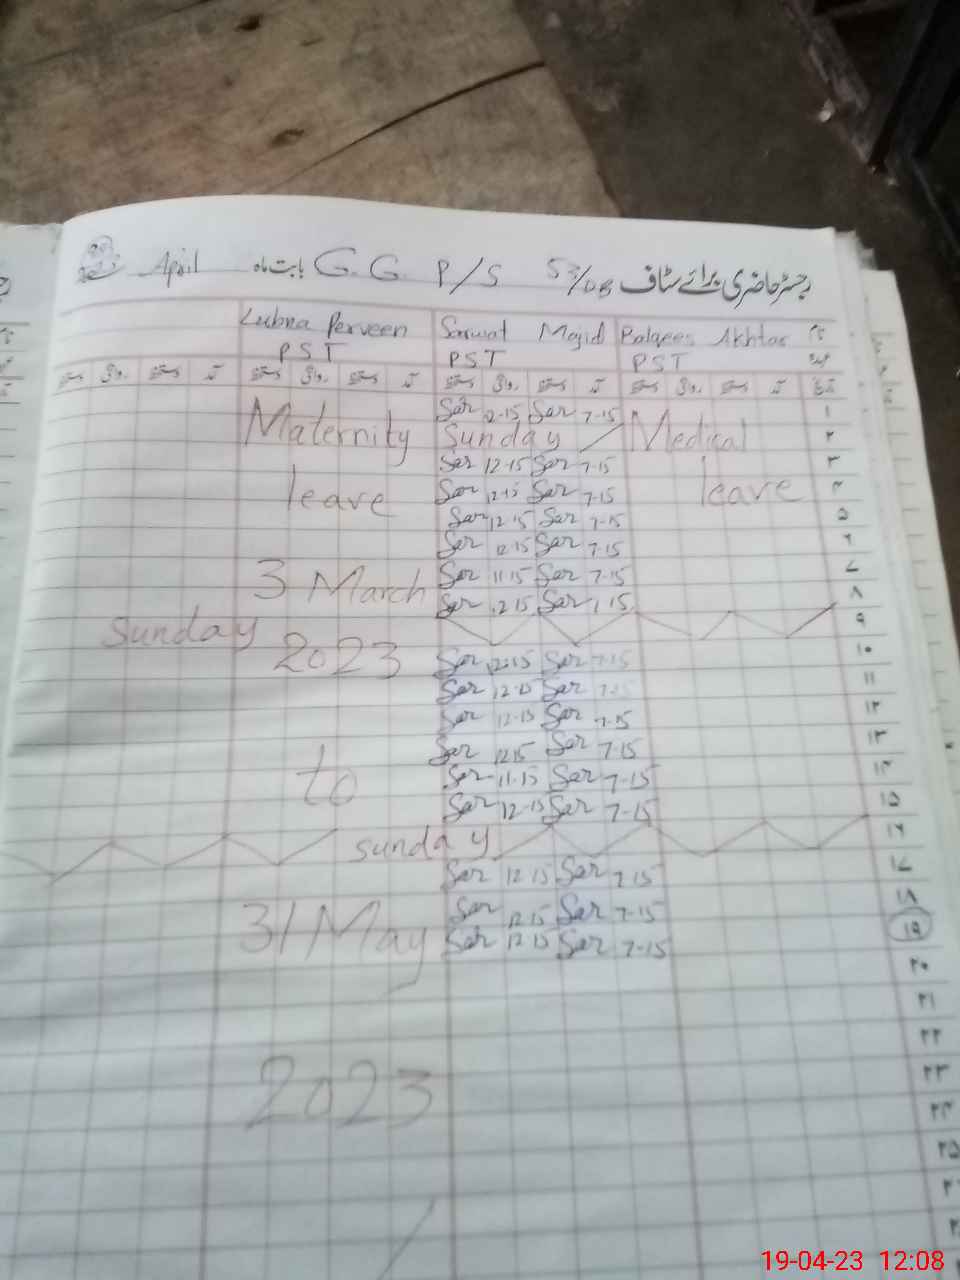 رجسٹر حاضری برائے سٹاف G.G P/S 53/DB بابت ماہ April
Lubna Perveen Sarwat Majid Balqees Akhtar
PST PST PST
Sar 12-15 Sar 7-15 ۱
Maternity Sunday Medical ۲
Sar 12-15 Sar 7-15 ۳
leave Sar 12-15 Sar 7-15 leave ۴
Sar 12-15 Sar 7-15 ۵
Sar 12-15 Sar 7-15 ۶
3 March Sar 11-15 Sar 7-15 ۷
Sar 12-15 Sar 7-15 ۸
Sunday ۹
2023 Sar 12-15 Sar 7-15 ۱۰
Sar 12-15 Sar 7-15 ۱۱
Sar 12-15 Sar 7-15 ۱۲
Sar 12-15 Sar 7-15 ۱۳
to Sar 11-15 Sar 7-15 ۱۴
Sar 12-15 Sar 7-15 ۱۵
sunday ۱۶
Sar 12-15 Sar 7-15 ۱۷
Sar 12-15 Sar 7-15 ۱۸
31 May Sar 12-15 Sar 7-15 ۱۹
۲۰
۲۱
۲۲
2023 ۲۳
۲۴
۲۵
19-04-23 12:08